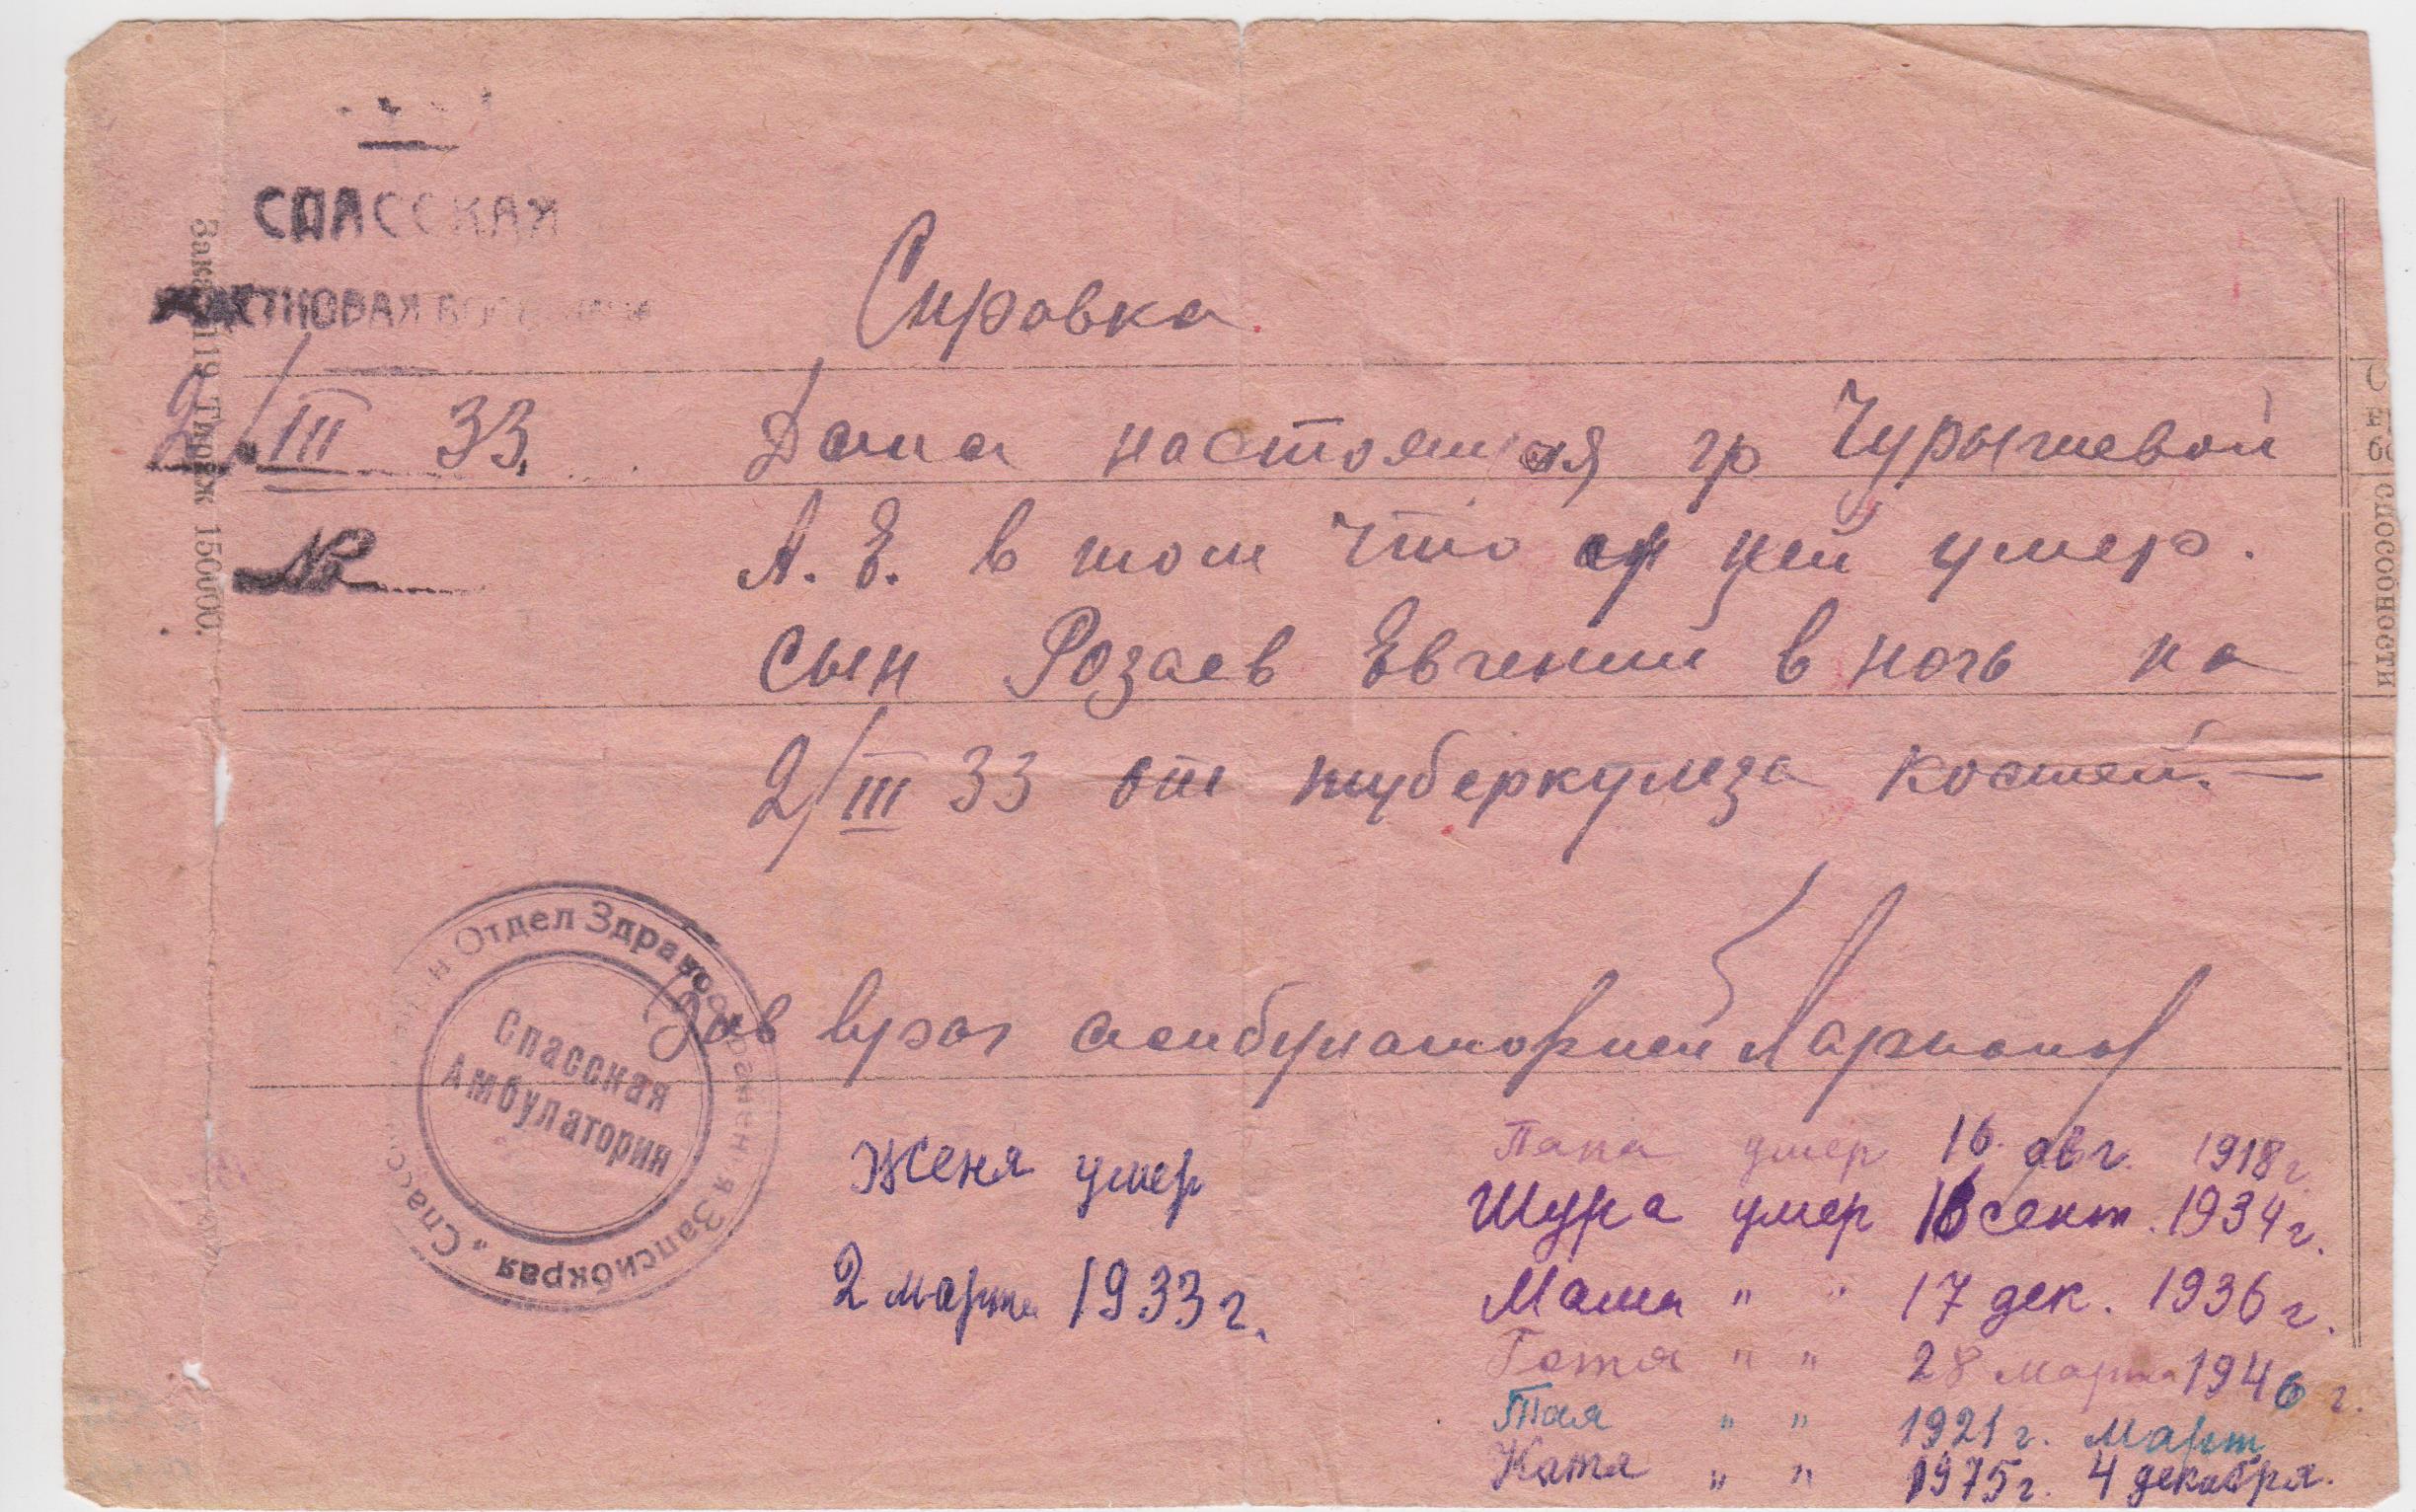 СПАССКАЯ
УЧАСТКОВАЯ БОЛЬНИЦА
2/III 33.
№
Заказ 119 Тираж 150000.
способности
Справка.
Дана настоящая гр Чурышевой
А. Е. в том что ей умер.
сын Розаев Евгений в ночь на
2/III 33 от туберкулеза костей. —
Зав врач амбулаторией Ларионов
Отдел Здравоохранения Запсибкрая „Спасс
Спасская
Амбулатория
Женя умер
2 марта 1933 г.
Папа умер 16. авг. 1918 г.
Шура умер 16 сент. 1934 г.
Маша " " 17 дек. 1936 г.
" " 28 марта 1946 г.
Тая " " 1921 г. Март
Катя " " 1975 г. 4 декабря.